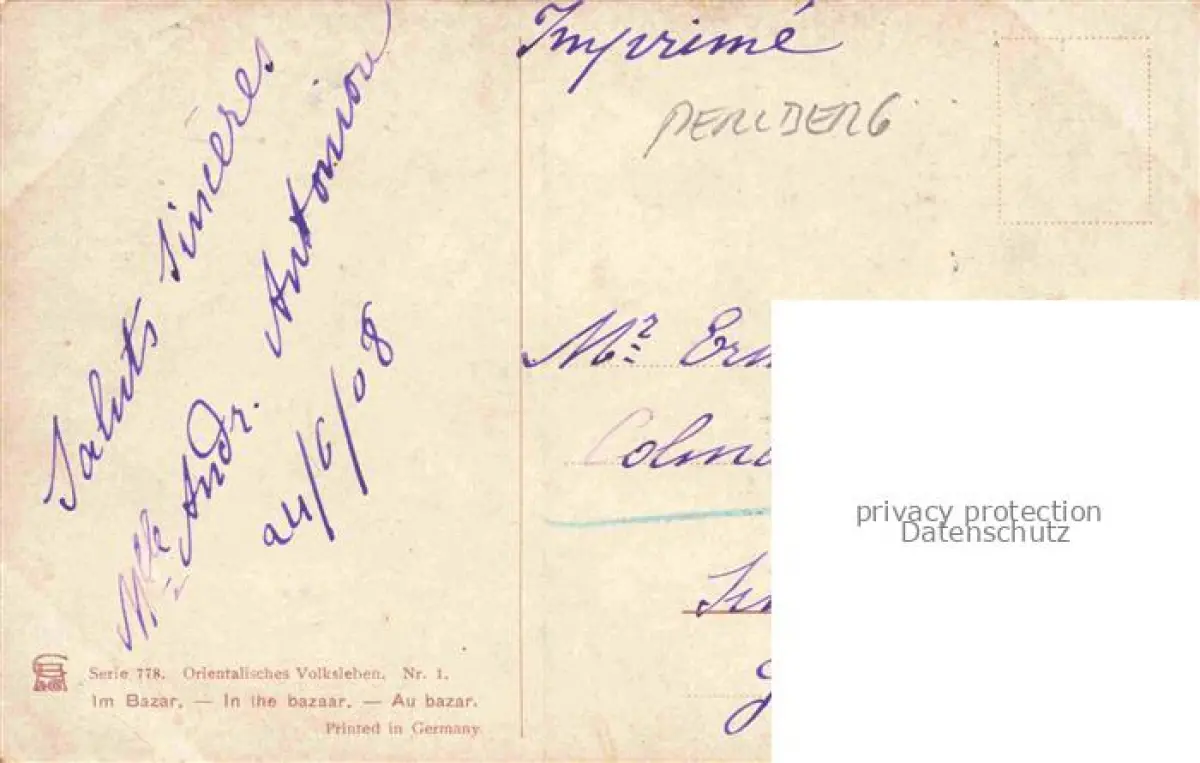 Imprimé
PERLBERG
Saluts Sincères
Mlle Andr. Antoniou
24/6/08
Mr
privacy protection
Datenschutz
Serie 778. Orientalisches Volksleben. Nr. 1.
Im Bazar. — In the bazaar. — Au bazar.
Printed in Germany